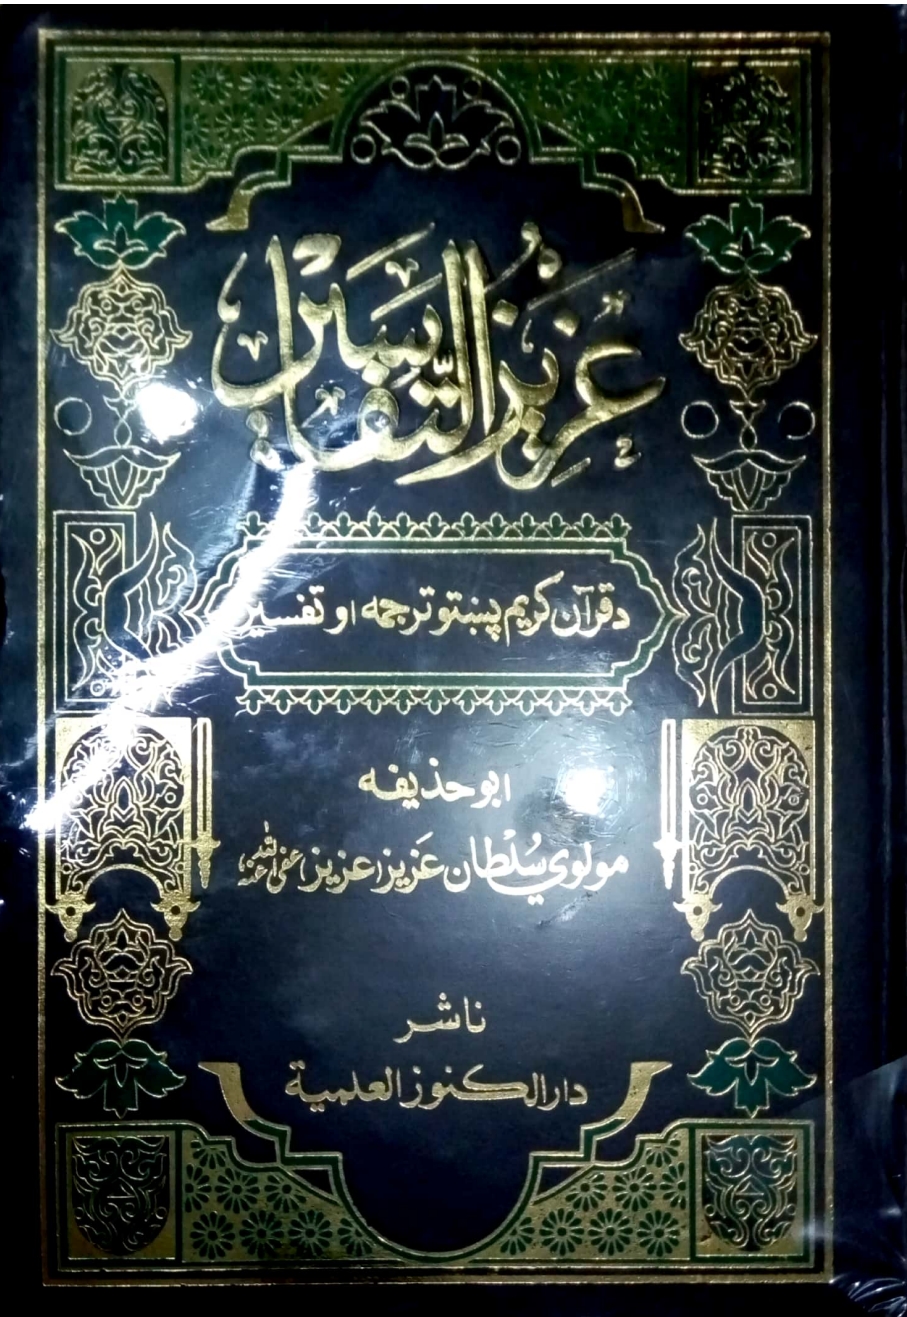 عزیز التَّفاسیر
د قرآن کریم پښتو ترجمه او تفسیر
ابو حذیفه
مولوي سُلْطان عَزیز (عزیز) عفی الله عنه
ناشر
دار الکنوز العلمیة